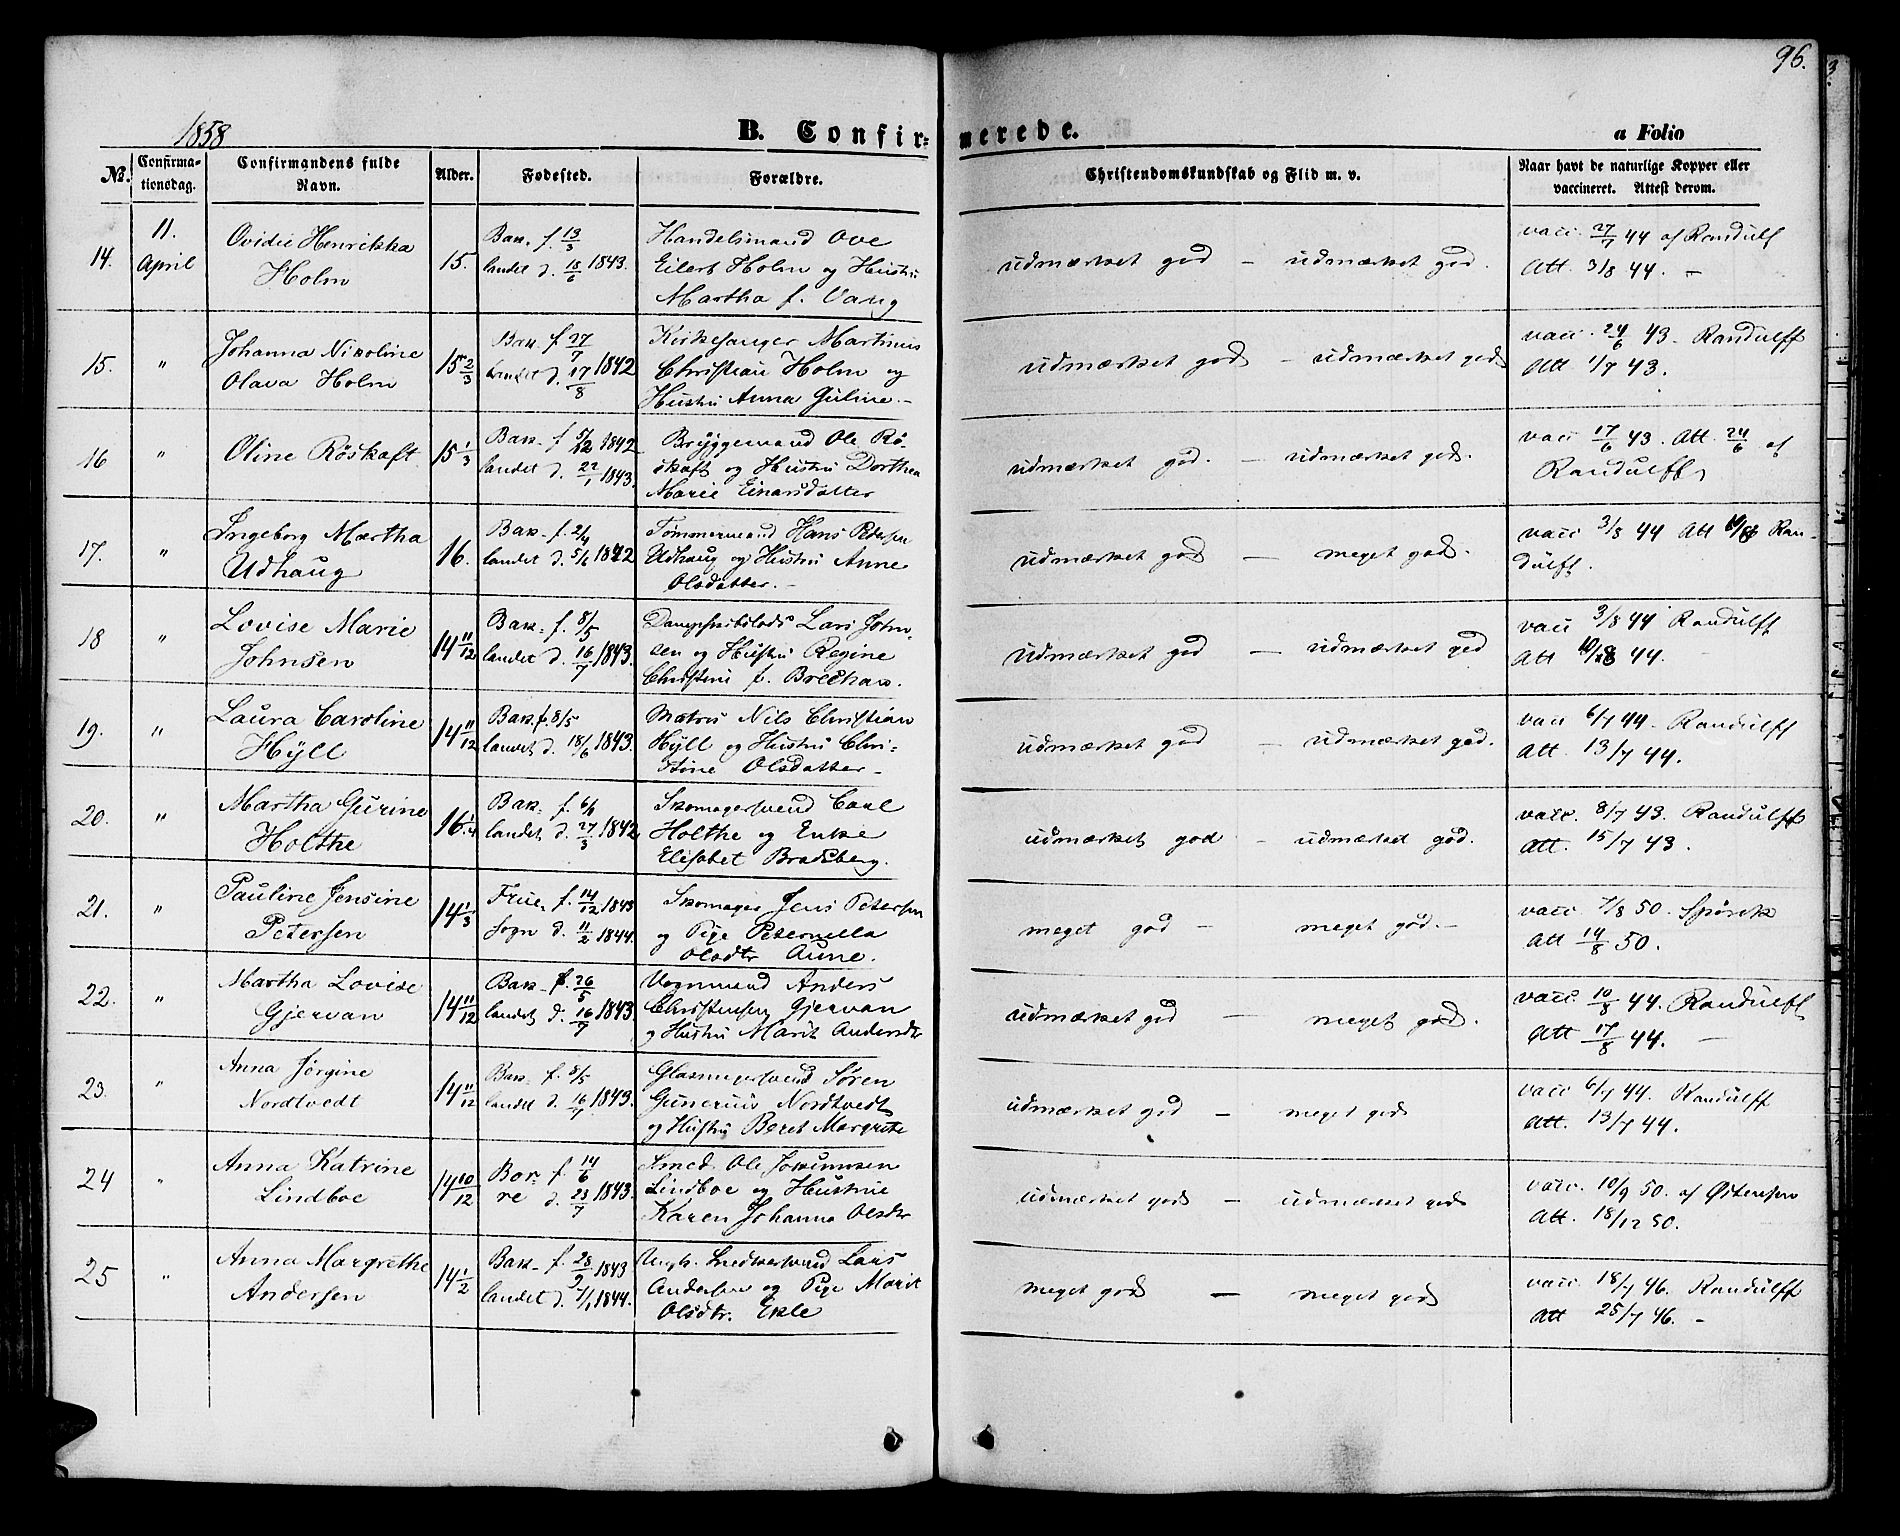 96.
3
1858
B. Confir- merede.
a Folio
No. Confirmationsdag. Confirmandens fulde Navn. Alder. Fødested. Forældre. Christendomskundskab og Flid m. v. Naar havt de naturlige Kopper eller vaccineret. Attest derom.
14. 11. April Ovidie Henrikka Holm 15. Bak- f. 13/3 landet d. 18/6 1843. Handelsmand Ove Eilert Holm og Hustru Martha f. Vang udmærket god - udmærket god. vacc. 27/7 44 af Randulf Att. 3/8 44. -
15. " Johanna Nikoline Olava Holm 15 2/3 Bak. f 27/7 landet d. 17/8 1842 Kirkesanger Martinus Christian Holm og Hustru Anna Guline. - udmærket god - udmærket god vacc. 24/6 43. Randulff Att 1/7 43.
16 " Oline Röskaft 15 1/3 Bak- f 5/12 1842 landet d. 22/1 1843. Bryggemand Ole Röskaft og Hustru Dorthea Marie Einarsdatter udmærket god. - udmærket god. vacc 17/6 43. Att. 24/6 af Randulff
17. " Ingeborg Martha Udhaug 16. Bak- f. 2/4 landet d. 5/6 1842 Tømmermand Hans Petersen Udhaug og Hustru Anne Olsdatter. - udmærket god - meget god. vacc 3/8 44 Att 10/8 Randulff.
18 " Lovise Marie Johnsen 14 11/12 Bak- f. 8/5 landet d. 16/7 1843. Lars Johnsen og Hustru Regine Christine f. udmærket god - udmærket god vacc 3/8 44 Randulff Att 10/8 44.
19. " Laura Caroline Hÿll 14 11/12 Bak- f. 8/5 landet d. 18/6 1843. Matros Nils Christian Hÿll og Hustru Christine Olsdatter - udmærket god - udmærket god. vacc 6/7 44. Randulff Att. 13/7 44.
20. " Martha Gurine Holthe 16 1/4 Bak- f. landet d. 27/3 1842 Skomagersvend Carl Holthe og Enke Elisabet Bradsberg. udmærket god - udmærket god. vacc. 8/7 43. Randulff Att. 15/7 43.
21. " Pauline Jensine Petersen 14 1/3 Frue- f. 14/12 1843 sogn d. 11/2 1844. Skomager Jens Petersen og Pige Peternella Olsdtr Aune. meget god - meget god. - vacc. 7/8 50. Spörck Att 14/8 50.
22. " Martha Lovise Gjervan 14 11/12 Bak- f. 26/5 landet d. 16/7 1843 Vognmand Anders Christensen Gjervan og Hustru Marit Andersdtr udmærket god - meget god. vacc. 10/8 44. Randulff Att 17/8 44. -
23. " Anna Jørgine Nordtvedt 14 11/12 Bak- f. 8/5 landet d. 16/7 1843. Glasmagersvend Søren Gunerius Nordtvedt og Hustru Beret Margrete udmærket god - meget god vacc 6/7 44. Randulff Att. 13/7 44.
24 " Anna Katrine Lindboe 14 10/12 Bor- f. 14/6 re d. 23/7 1843. Smed. Ole Lindboe og Hustrue Karen Johanna Olsdtr udmærket god - udmærket god vacc. 10/9 50. af Østensen Att. 18/12 50.
25 " Anna Margrethe Andersen 14 1/2 Bak- f. 28/9 1843 landet d. 7/1 1844. Ungk. Snedkersvend Lars Andersen og Pige Marit Olsdtr. Ekle meget god - meget god vacc. 18/7 46. Randulff Att 25/7 46. -